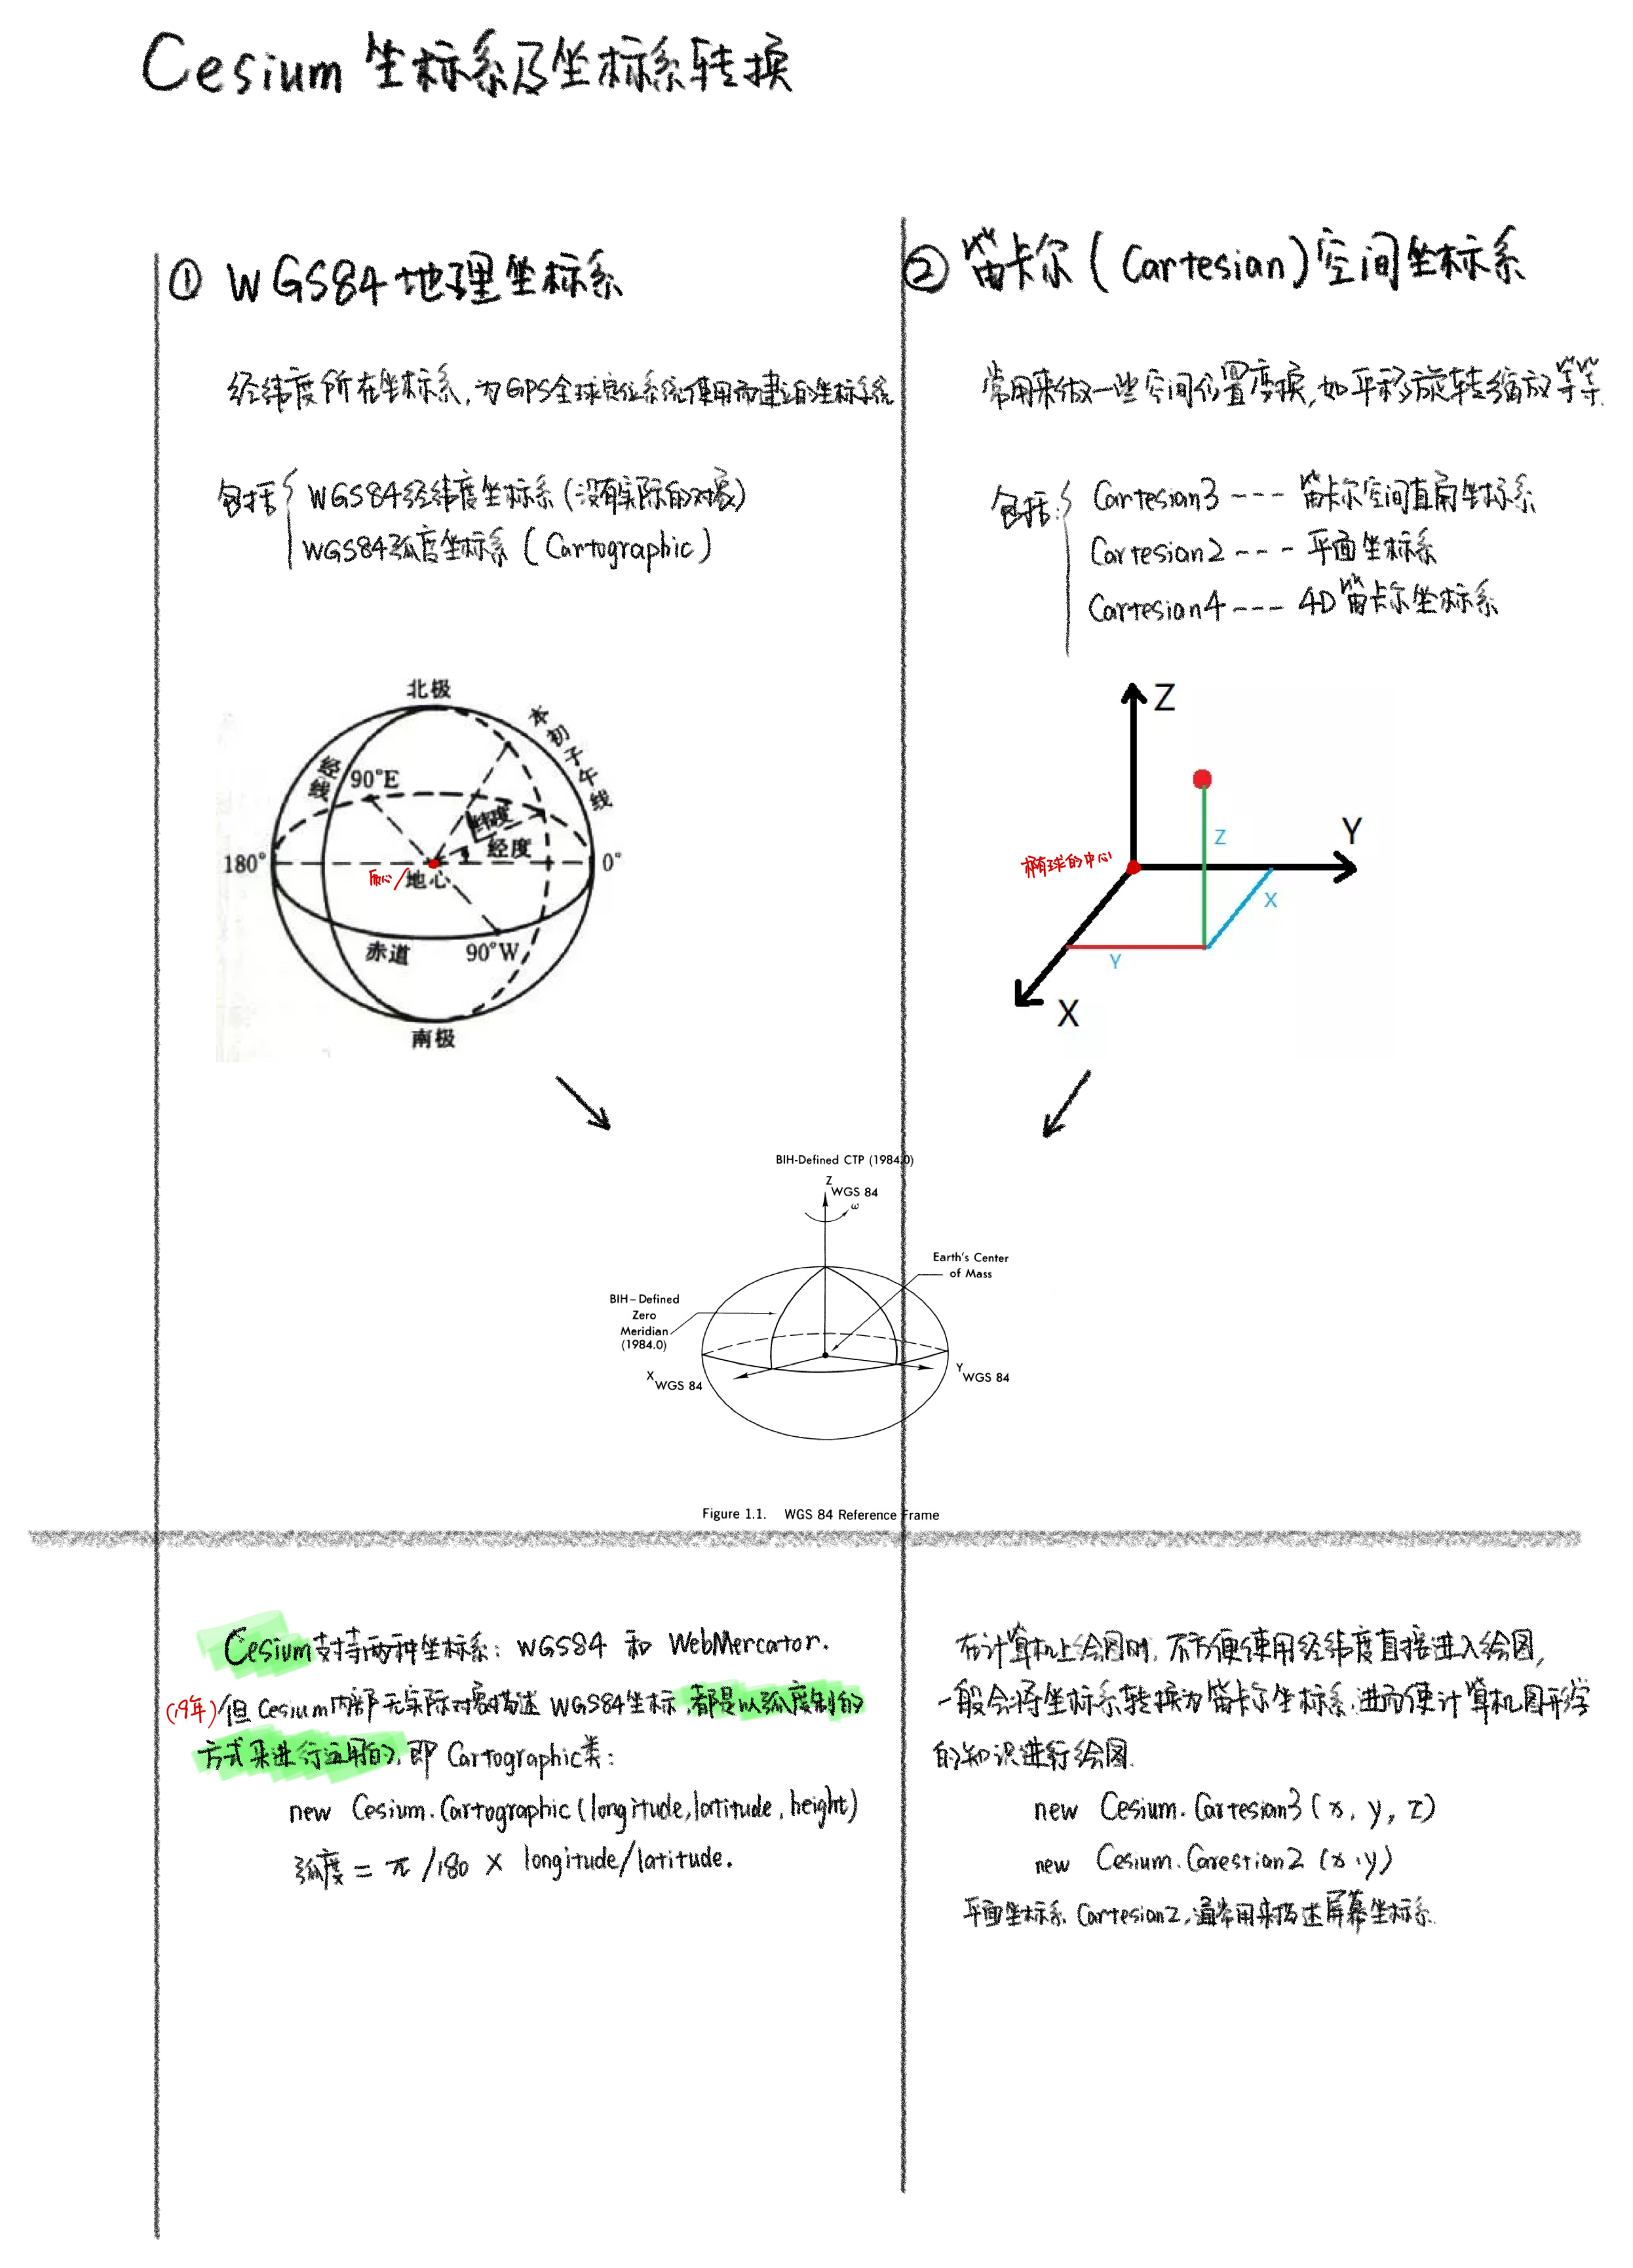 Cesium 坐标系及坐标系转换
① WGS84地理坐标系
经纬度所在坐标系,为GPS全球定位系统使用而建立的坐标系统
包括
WGS84经纬度坐标系(没有实际的对象)
WGS84弧度坐标系(Cartographic)
北极
本初子午线
经线
90°E
纬度
经度
180°
0°
质心/地心
赤道
90°W
南极
② 笛卡尔(Cartesian)空间坐标系
常用来做一些空间位置变换,如平移旋转缩放等等.
包括:
Cartesian3 --- 笛卡尔空间直角坐标系
Cartesian2 --- 平面坐标系
Cartesian4 --- 4D笛卡尔坐标系
Z
Z
Y
椭球的中心
X
Y
X
BIH-Defined CTP (1984.0)
Z WGS 84
ω
Earth's Center
of Mass
BIH-Defined
Zero
Meridian
(1984.0)
X WGS 84
Y WGS 84
Figure 1.1. WGS 84 Reference Frame
Cesium支持两种坐标系: WGS84 和 WebMercator.
(19年)/但Cesium内部无实际对象描述WGS84坐标,都是以弧度制的
方式来进行运用的,即Cartographic类:
new Cesium.Cartographic(longitude,latitude,height)
弧度 = π/180 × longitude/latitude.
在计算机上绘图时,不方便使用经纬度直接进入绘图,
一般会将坐标系转换为笛卡尔坐标系,进而使计算机图形学
的知识进行绘图.
new Cesium.Cartesian3(x, y, z)
new Cesium.Carestian2 (x.y)
平面坐标系Cartesian2,通常用来描述屏幕坐标系.